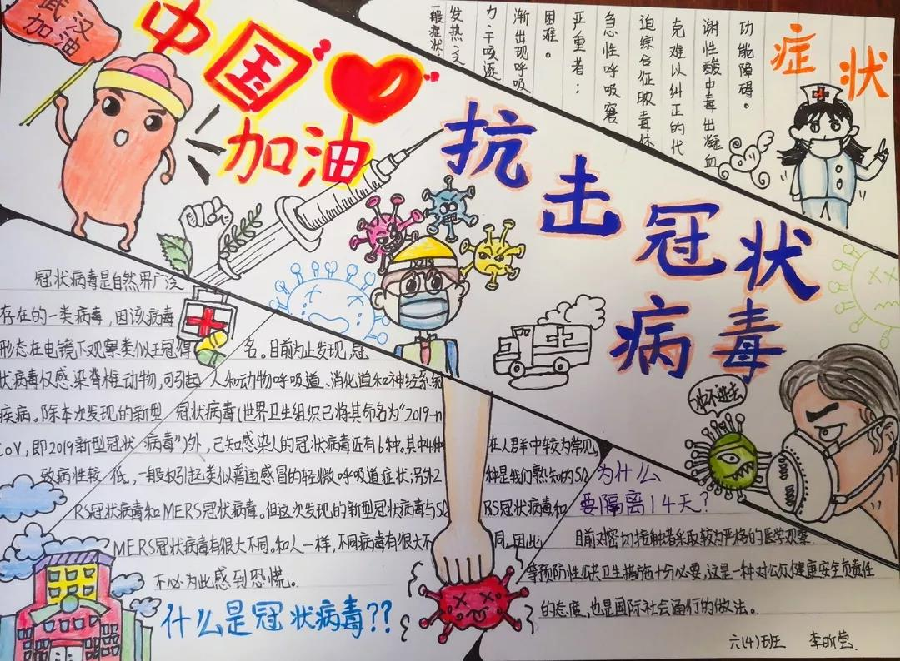 武汉
加油
中国
加油
抗击冠状病毒
症状
一般症状
发热、乏
力、干咳、逐
渐出现呼吸
困难。
严重者：
急性呼吸窘
迫综合征脓毒休
克难以纠正的代
谢性酸中毒出凝血
功能障碍。
冠状病毒是自然界广泛
存在的一类病毒，因该病毒
形态在电镜下观察类似王冠得名。目前为止发现，冠
状病毒仅感染脊椎动物，可引起人和动物呼吸道、消化道和神经系统
疾病。除本次发现的新型冠状病毒(世界卫生组织已将其命名为"2019-n
CoV，即2019新型冠状病毒")外，已知感染人的冠状病毒还有6种。其中4种在人群中较为常见，
致病性较低，一般仅引起类似普通感冒的轻微呼吸道症状；另外2种是我们熟知的SA
RS冠状病毒和MERS冠状病毒。但这次发现的新型冠状病毒与SARS冠状病毒和
MERS冠状病毒有很大不同。和人一样，不同病毒有很大不同。因此，
不必为此感到恐慌。
什么是冠状病毒??
冲不进去
为什么
要隔离14天?
目前对密切接触者采取较为严格的医学观察
等预防性公共卫生措施十分必要，这是一种对公众健康安全负责任
的态度，也是国际社会通行的做法。
六(4)班